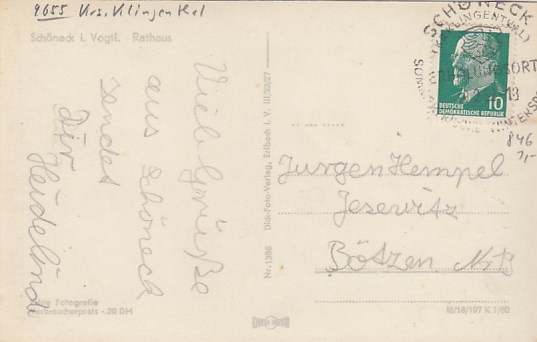 9655 Krs. Klingenthal
Schöneck i. Vogtl. Rathaus
Viele Grüße
aus Schöneck
sendet
Dir
Heidelinde
Echte Fotografie
Verbraucherpreis -.20 DM
Nr. 1308 Dick-Foto-Verlag, Erlbach i. V. III/23/27
SCHÖNECK
(KR KLINGENTHAL)
ERHOLUNGSORT
SOMMER WINTERSP
DEUTSCHE
DEMOKRATISCHE REPUBLIK
10
846
7,-
Jürgen Hempel
Jeserwitz
Bötzen
III/18/197 K 1/60